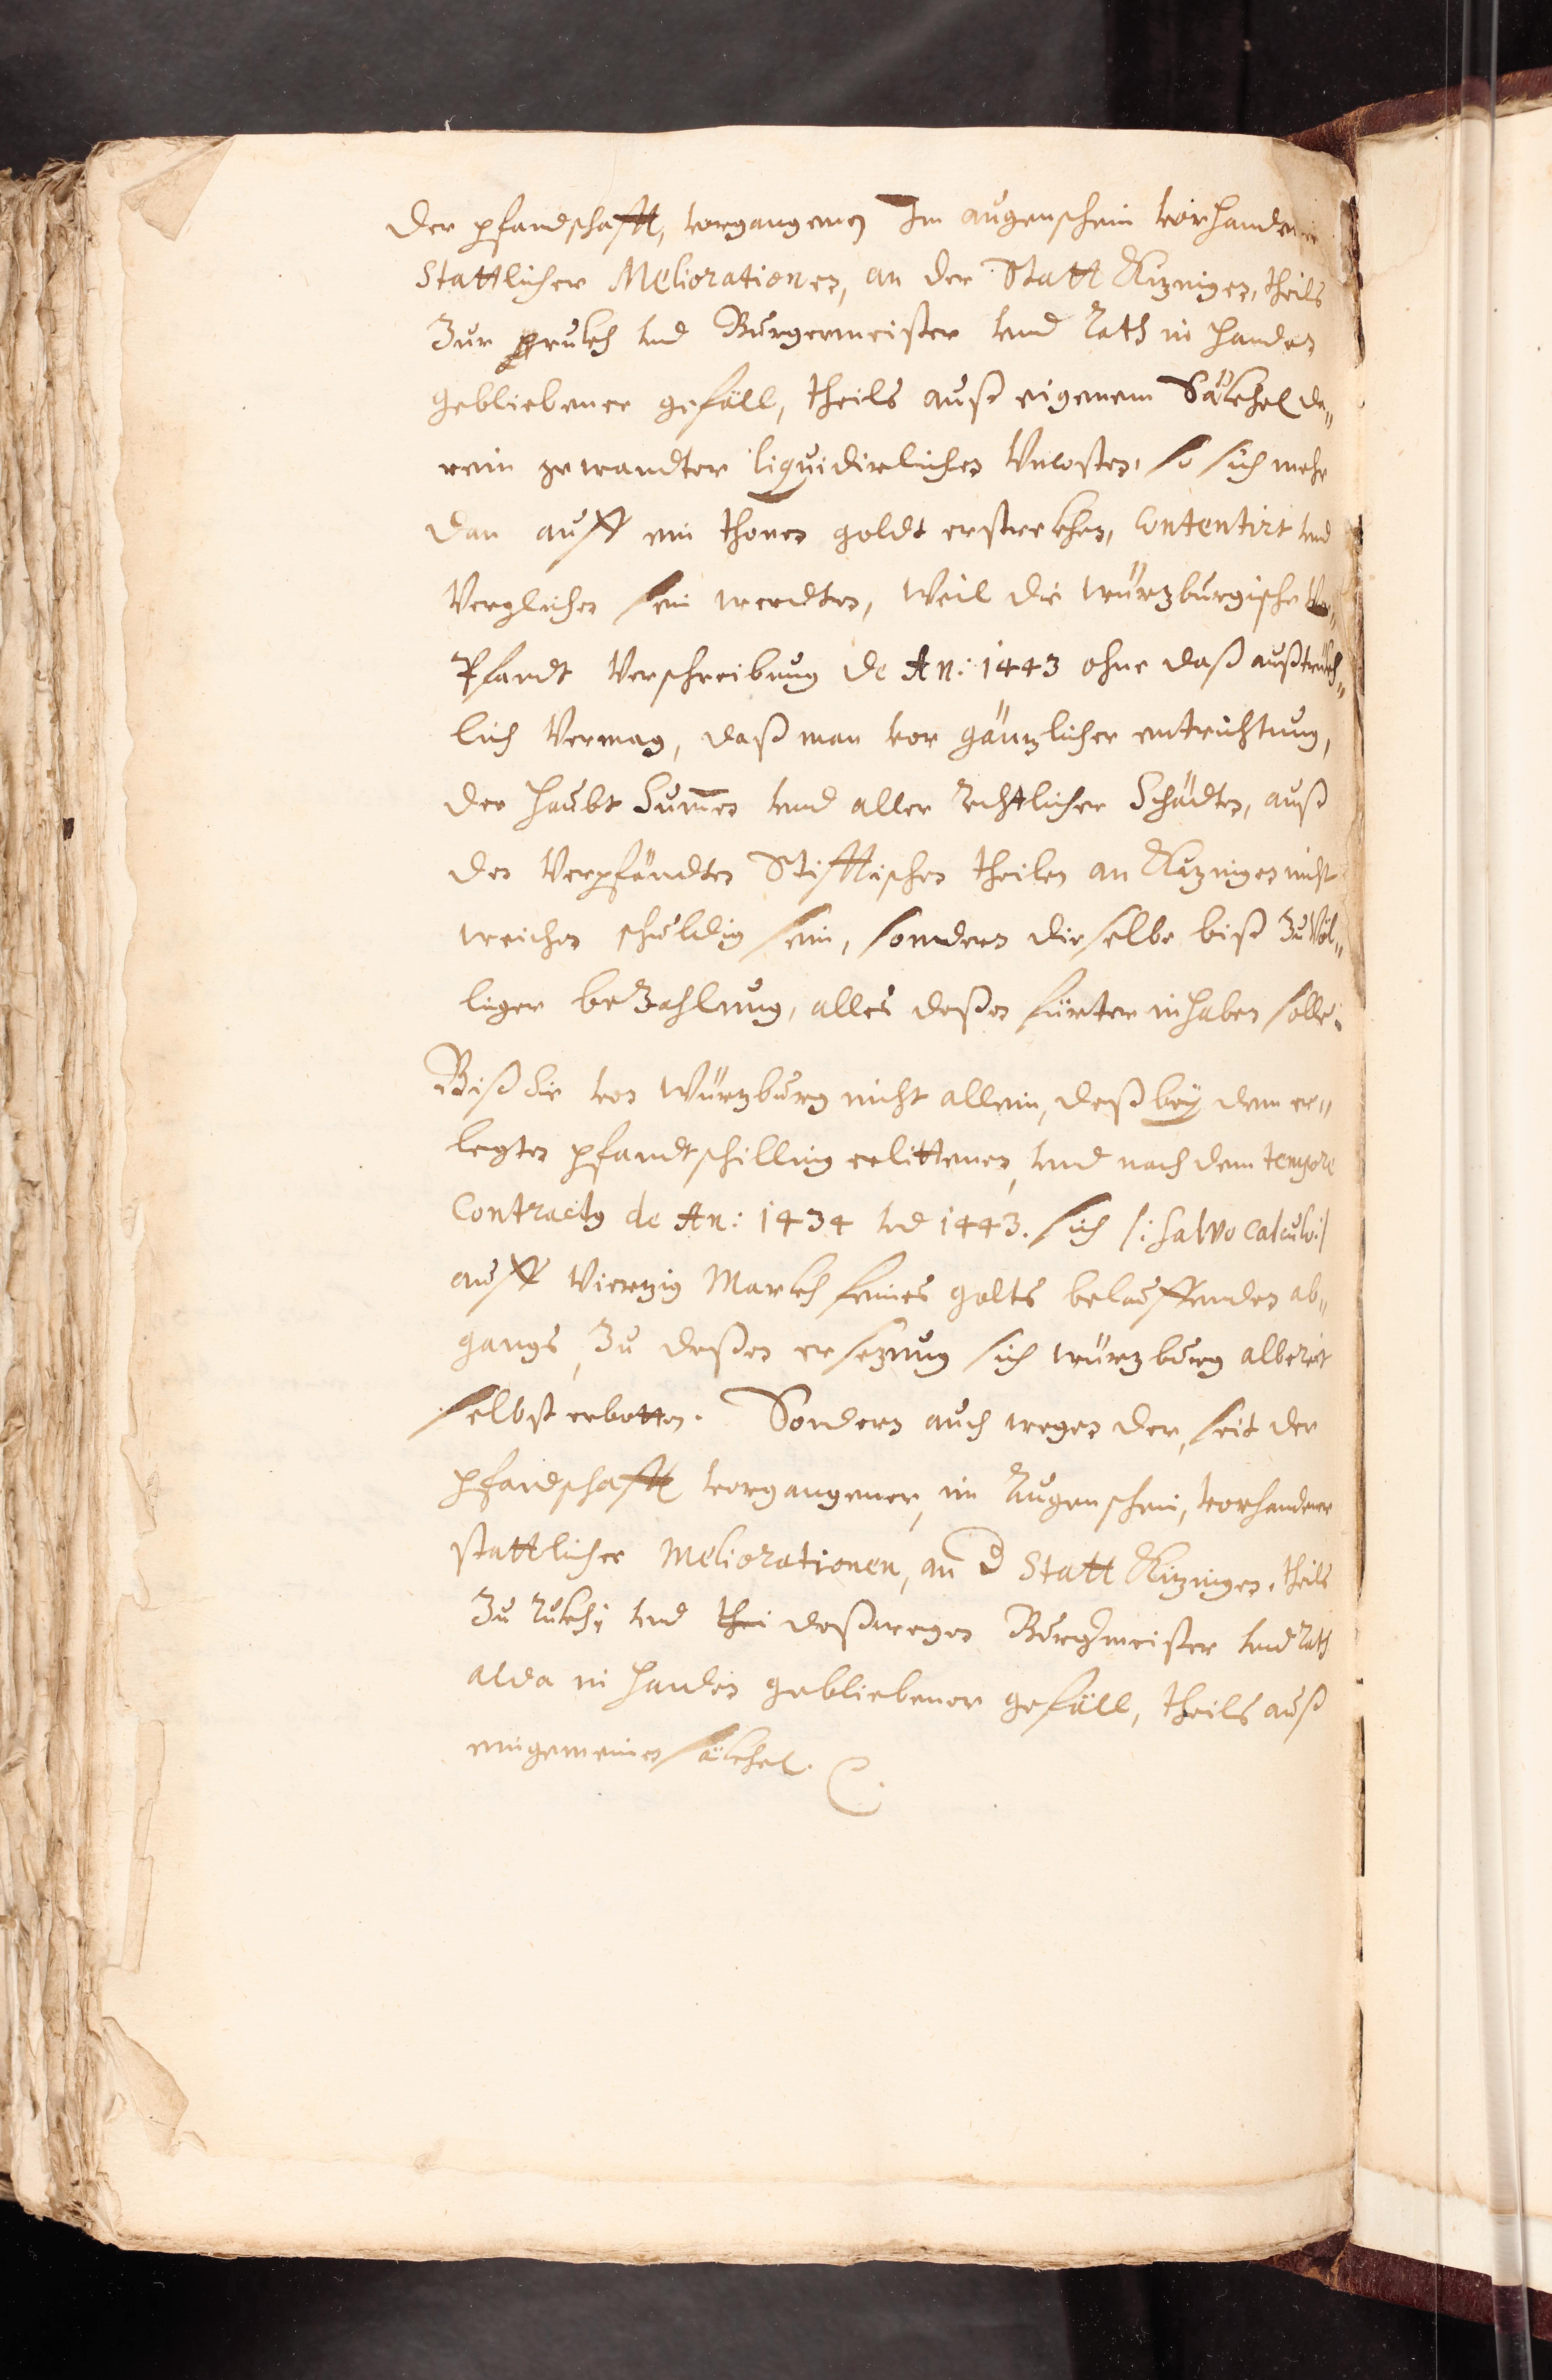 der pfandschafft, vorgangenen Im augenschein vorhandener
Stattlicher Meliorationen, an der Statt Kitzingen, theils
Zur rukh vnd Burgermeister vnd Rath in handen
gebliebener gefäll, theils auß eigenem Säkhel da„
rein gewandter liquidirlichen Vncosten, so sich mehr
dan auff ein thonen goldt erstrekhen, Contentirt vnd
Verglichen sein werdten, Weil die würtzburgische
Pfandt Verschreibung de An: 1443 ohne daß außtrükh„
lich Vermag, daß man vor gäntzlicher entrichtung,
der haubt Summen vnd aller rechtlicher Schädten, auß
den Verpfändten Stifftischen theilen an Kitzingen nicht
weichen schuldig sein, sondern dieselbe biß Zu Völ„
liger beZahlung, alles deßen fürter inhaben solle.
Biß die von Würtzburg nicht allein, deß bey dem er„
legten pfandtschilling erlittenen, vnd nach dem tempore
Contractus de An: 1434 vnd 1443. sich /: salvo calculo :/
auff Viertzig Markh feines golts belauffenden ab„
gangs, Zu deßen ersezung sich würtzburg albereit
selbst erbotten. Sondern auch wegen der, seit der
pfandschafft vorgangener, im Augenschein, vorhandener
stattlicher Meliorationen, an d Statt Kitzingen, theils
Zu rukh, vnd thei deßwegen Burgermeister vnd Rath
alda in handen gebliebener gefäll, theils auß
eingemeinen säkhel.